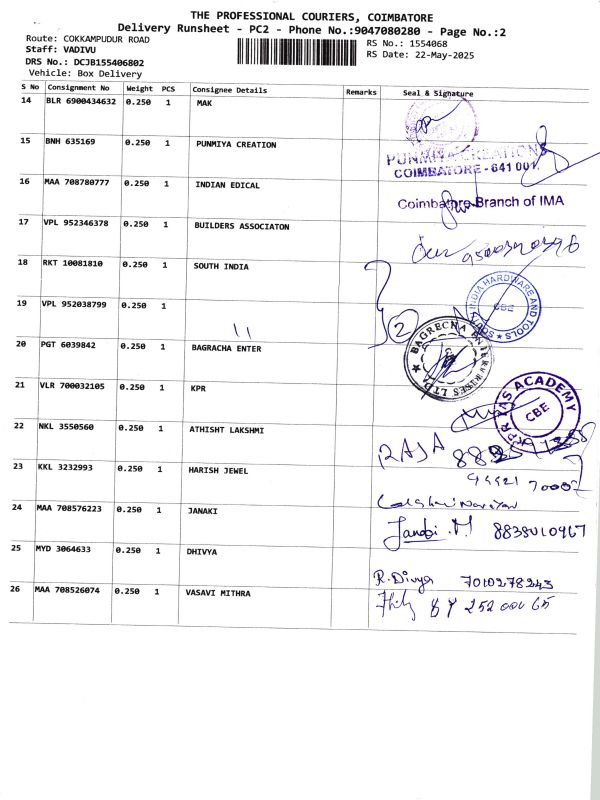 THE PROFESSIONAL COURIERS, COIMBATORE
Delivery Runsheet - PC2 - Phone No.:9047080280 - Page No.:2
Route: COKKAMPUDUR ROAD
RS No.: 1554068
Staff: VADIVU
RS Date: 22-May-2025
DRS No.: DCJB155406802
Vehicle: Box Delivery
S No Consignment No Weight PCS Consignee Details Remarks Seal & Signature
14 BLR 6900434632 0.250 1 MAK
15 BNH 635169 0.250 1 PUNMIYA CREATION
PUNMIYA CREATIONS
COIMBATORE - 641 001.
16 MAA 708780777 0.250 1 INDIAN EDICAL
Coimbatore Branch of IMA
17 VPL 952346378 0.250 1 BUILDERS ASSOCIATON
18 RKT 10081810 0.250 1 SOUTH INDIA
SOUTH INDIA HARDWARE AND TOOLS
CBE
19 VPL 952038799 0.250 1 11
2
20 PGT 6039842 0.250 1 BAGRACHA ENTER
21 VLR 700032105 0.250 1 KPR
KPR IAS ACADEMY
CBE
22 NKL 3550560 0.250 1 ATHISHT LAKSHMI
RAJA
23 KKL 3232993 0.250 1 HARISH JEWEL
24 MAA 708576223 0.250 1 JANAKI
8838010967
25 MYD 3064633 0.250 1 DHIVYA
R. Divya 7010278243
26 MAA 708526074 0.250 1 VASAVI MITHRA